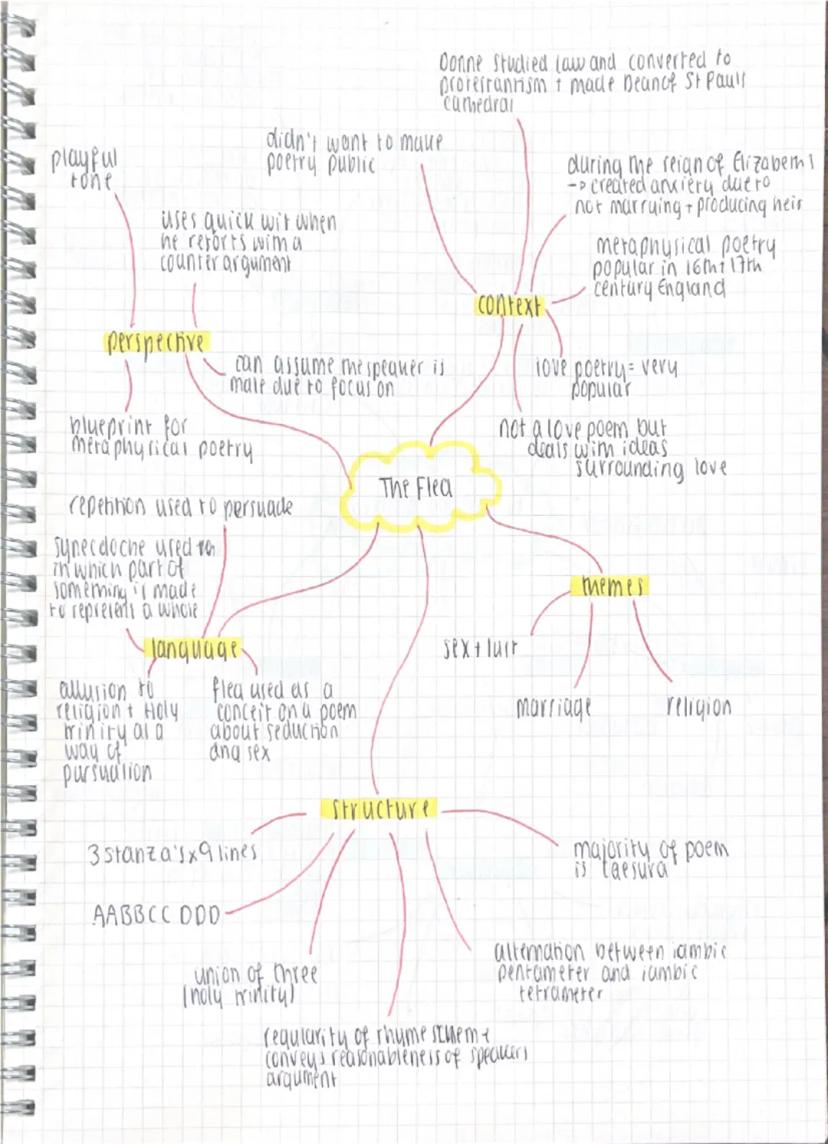 Donne studied law and converted to
protestantism + made Dean of St Paul's
cathedral
didn't want to make
poetry public
during the reign of Elizabeth 1
-> created anxiety due to
not marrying + producing heir
metaphysical poetry
popular in 16th + 17th
century England
context
love poetry = very
popular
not a love poem but
deals with ideas
surrounding love
playful
tone
uses quick wit when
he retorts with a
counter argument
perspective
can assume the speaker is
male due to focus on
blueprint for
metaphysical poetry
The Flea
repetition used to persuade
synecdoche used
in which part of
something is made
to represent a whole
language
allusion to
religion + Holy
trinity as a
way of
pursuasion
flea used as a
conceit on a poem
about seduction
and sex
themes
sex + lust
marriage
religion
structure
3 stanza's x 9 lines
AABBCC DDD
union of three
(holy trinity)
regularity of rhyme scheme
conveys reasonableness of speakers
argument
alternation between iambic
pentameter and iambic
tetrameter
majority of poem
is caesura